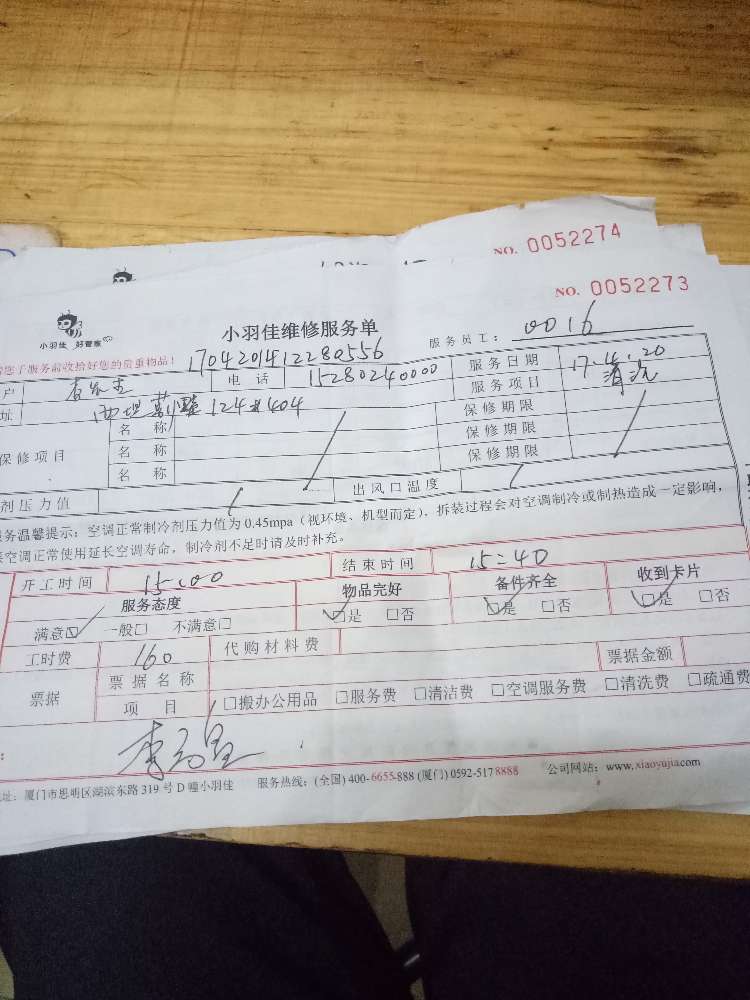 NO. 0052274
NO. 0052273
小羽佳 好管家
小羽佳维修服务单
服务员工：0016
您了服务前收拾好您的贵重物品！
1704201412280556
户 电话 15280240000 服务日期 17.4.20
址 124 404 服务项目 清洗
名称 保修期限
保修项目 名称 保修期限
名称 保修期限
剂压力值 出风口温度
务温馨提示：空调正常制冷剂压力值为0.45mpa（视环境、机型而定），拆装过程会对空调制冷或制热造成一定影响，
空调正常使用延长空调寿命，制冷剂不足时请及时补充。
开工时间 15:00 结束时间 15:40
服务态度 物品完好 备件齐全 收到卡片
满意☑ 一般□ 不满意□ ☑是 □否 ☑是 □否 ☑是 □否
工时费 160 代购材料费
票据 票据名称 票据金额
项目 □搬办公用品 □服务费 □清洁费 □空调服务费 □清洗费 □疏通费
址：厦门市思明区湖滨东路319号D幢小羽佳 服务热线：(全国) 400-6655-888 (厦门) 0592-517 8888 公司网站：www.xiaoyujia.com